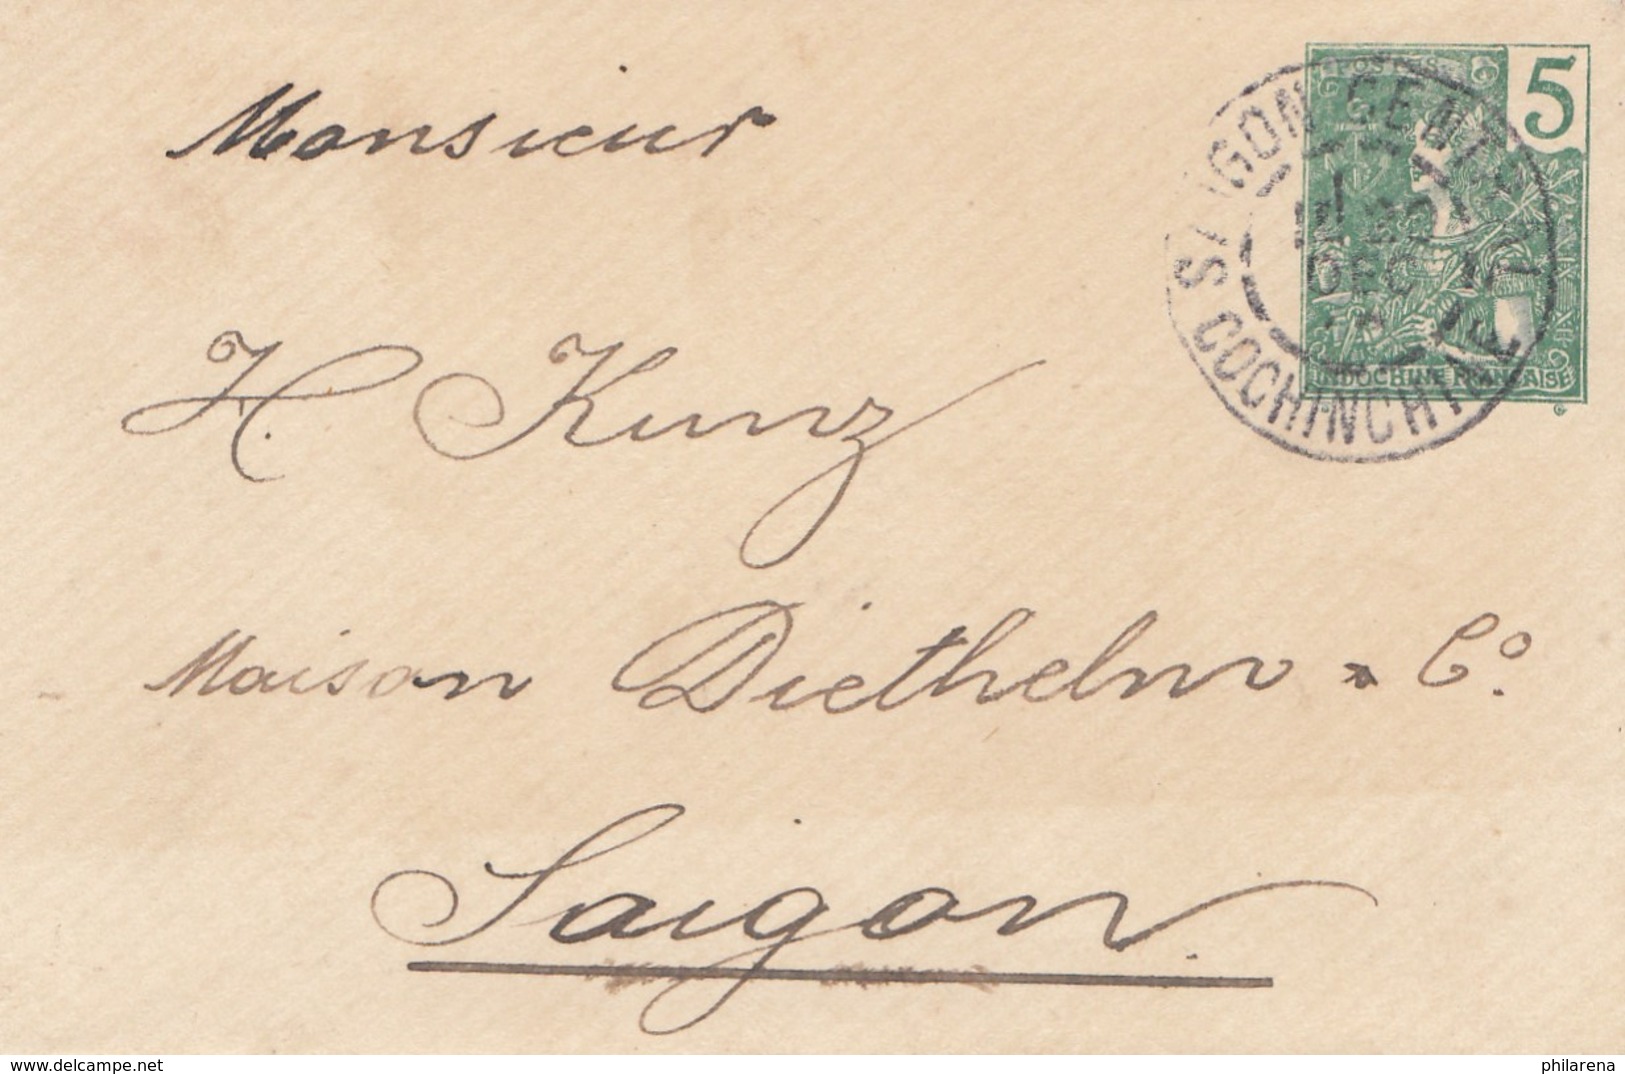 POSTES
5
SAIGON CENTRAL
22
DEC
COCHINCHINE
INDOCHINE FRANÇAISE
Monsieur
H. Kunz
Maison Diethelm & Co.
Saigon
www.delcampe.net
philarena